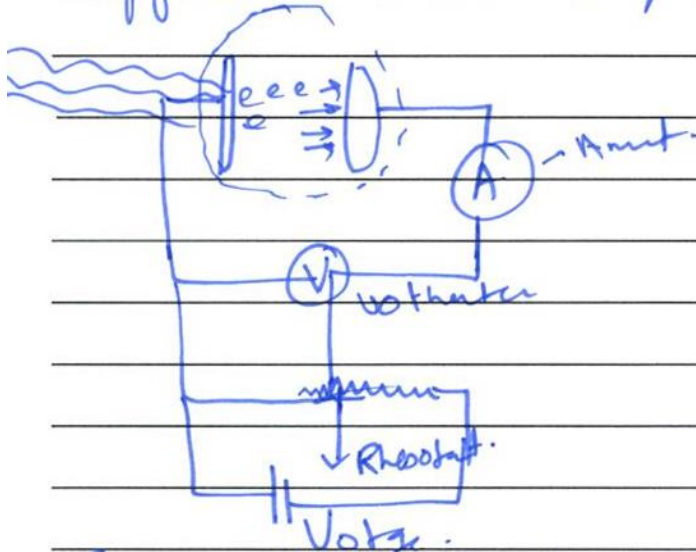 e e e
e
A
Amt.
V
voltmeter
Rheostat.
Votge.